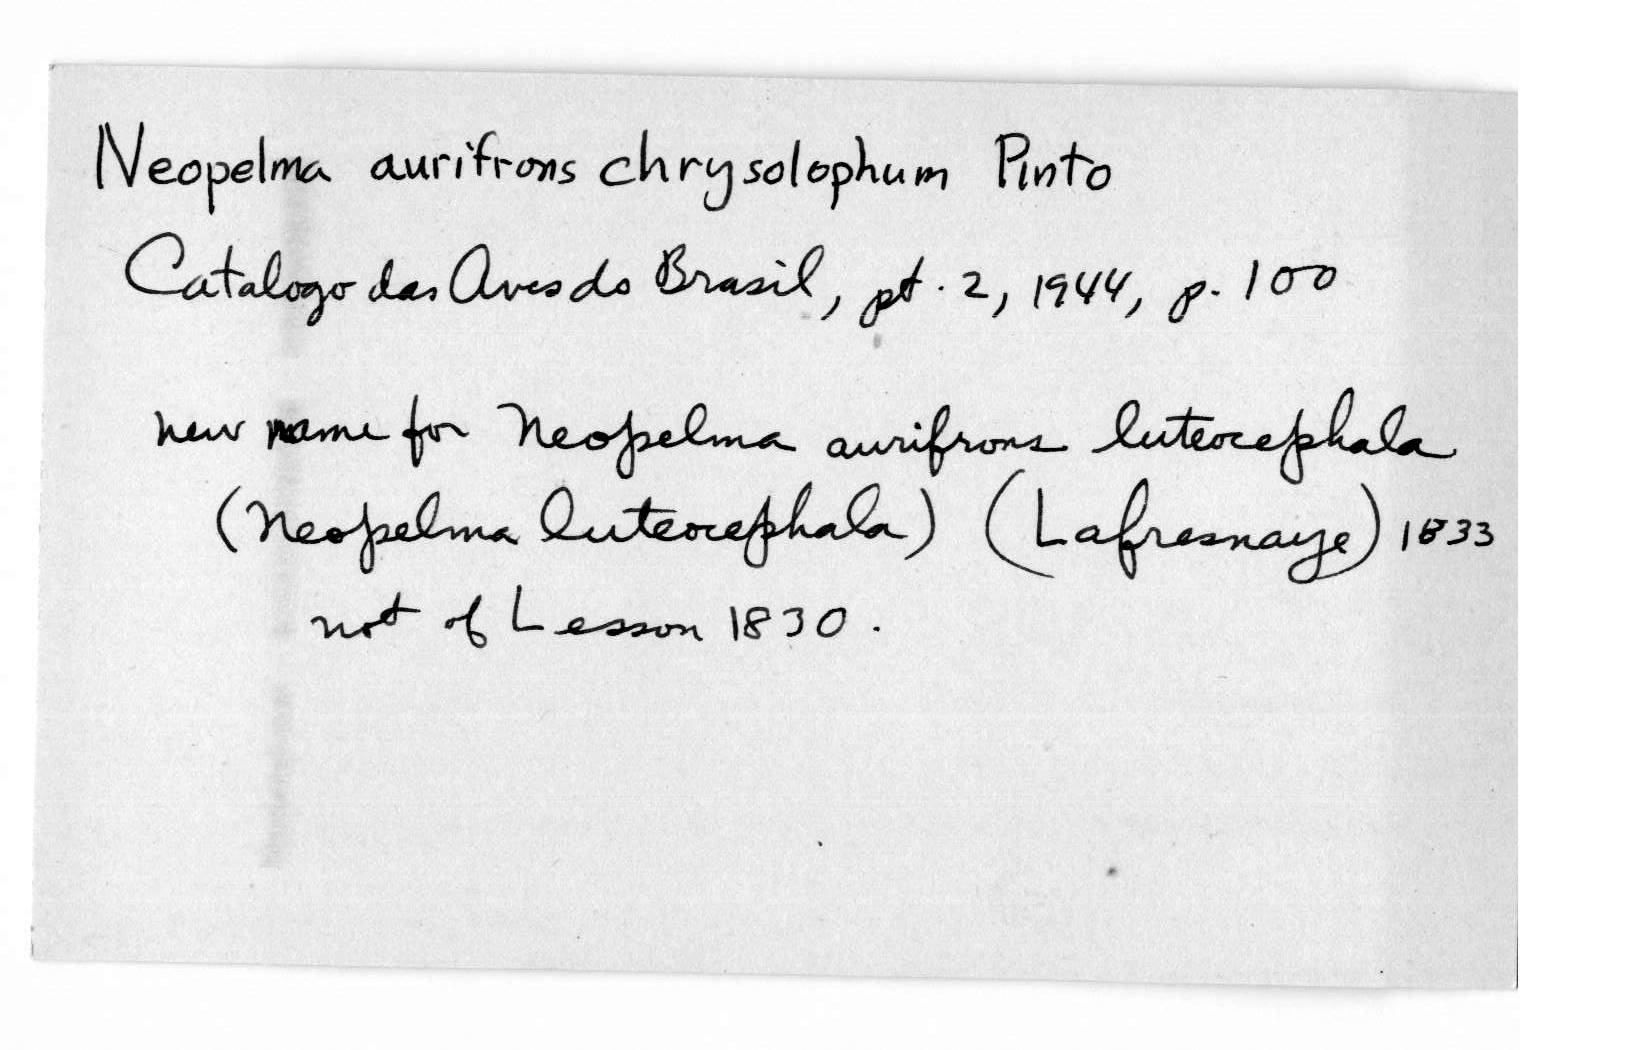 Neopelma aurifrons chrysolophum Pinto
Catalogo das Aves do Brasil, pt. 2, 1944, p. 100
new name for Neopelma aurifrons luteocephala
(Neopelma luteocephala) (Lafresnaye) 1833
not of Lesson 1830.